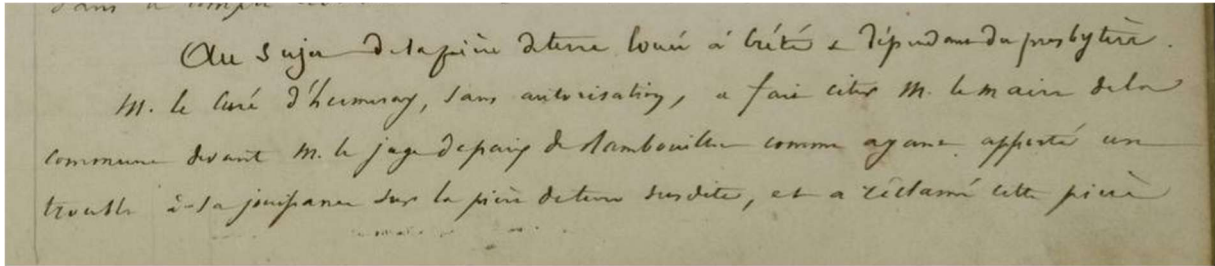 Au sujet de la pièce de terre louée à Crété & dépendant du presbytère.
M. le Curé d'hermeray, sans autorisation, a fait citer M. le maire de la
commune devant M. le juge de paix de Rambouillet comme ayant apporté un
trouble à sa jouissance sur la pièce de terre susdite, et a réclamé cette pièce